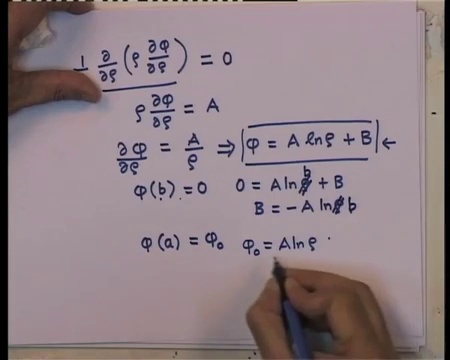 1/ρ ∂/∂ρ (ρ ∂φ/∂ρ) = 0
ρ ∂φ/∂ρ = A
∂φ/∂ρ = A/ρ ⇒ φ = A ln ρ + B ←
φ(b) = 0 0 = A ln b + B
B = -A ln b
φ(a) = φ₀ φ₀ = A ln ρ